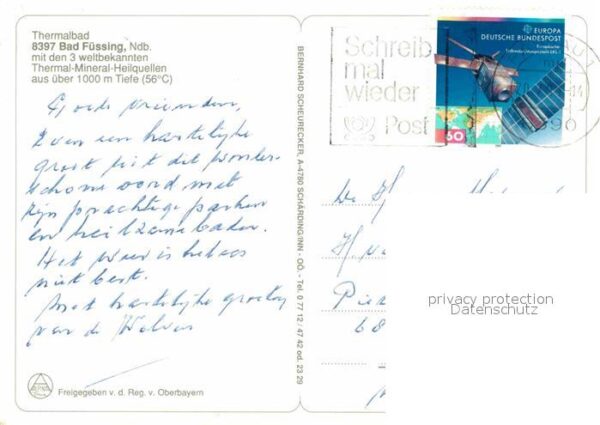 Thermalbad
8397 Bad Füssing, Ndb.
mit den 3 weltbekannten
Thermal-Mineral-Heilquellen
aus über 1000 m Tiefe (56°C)
Goede vrienden,
Even een hartelijke
groet uit dit wonder-
schone oord met
zijn prachtige parken
en heilzame baden.
Het weer is helaas
niet best.
Met hartelijke groeten
van de
Freigegeben v. d. Reg. v. Oberbayern
BERNHARD SCHEURECKER, A-4780 SCHÄRDING/INN - OÖ. - Tel. 0 77 12 / 47 42 od. 23 29
Schreib
mal
wieder
Post
EUROPA
DEUTSCHE BUNDESPOST
60
De
H.
68
privacy protection
Datenschutz